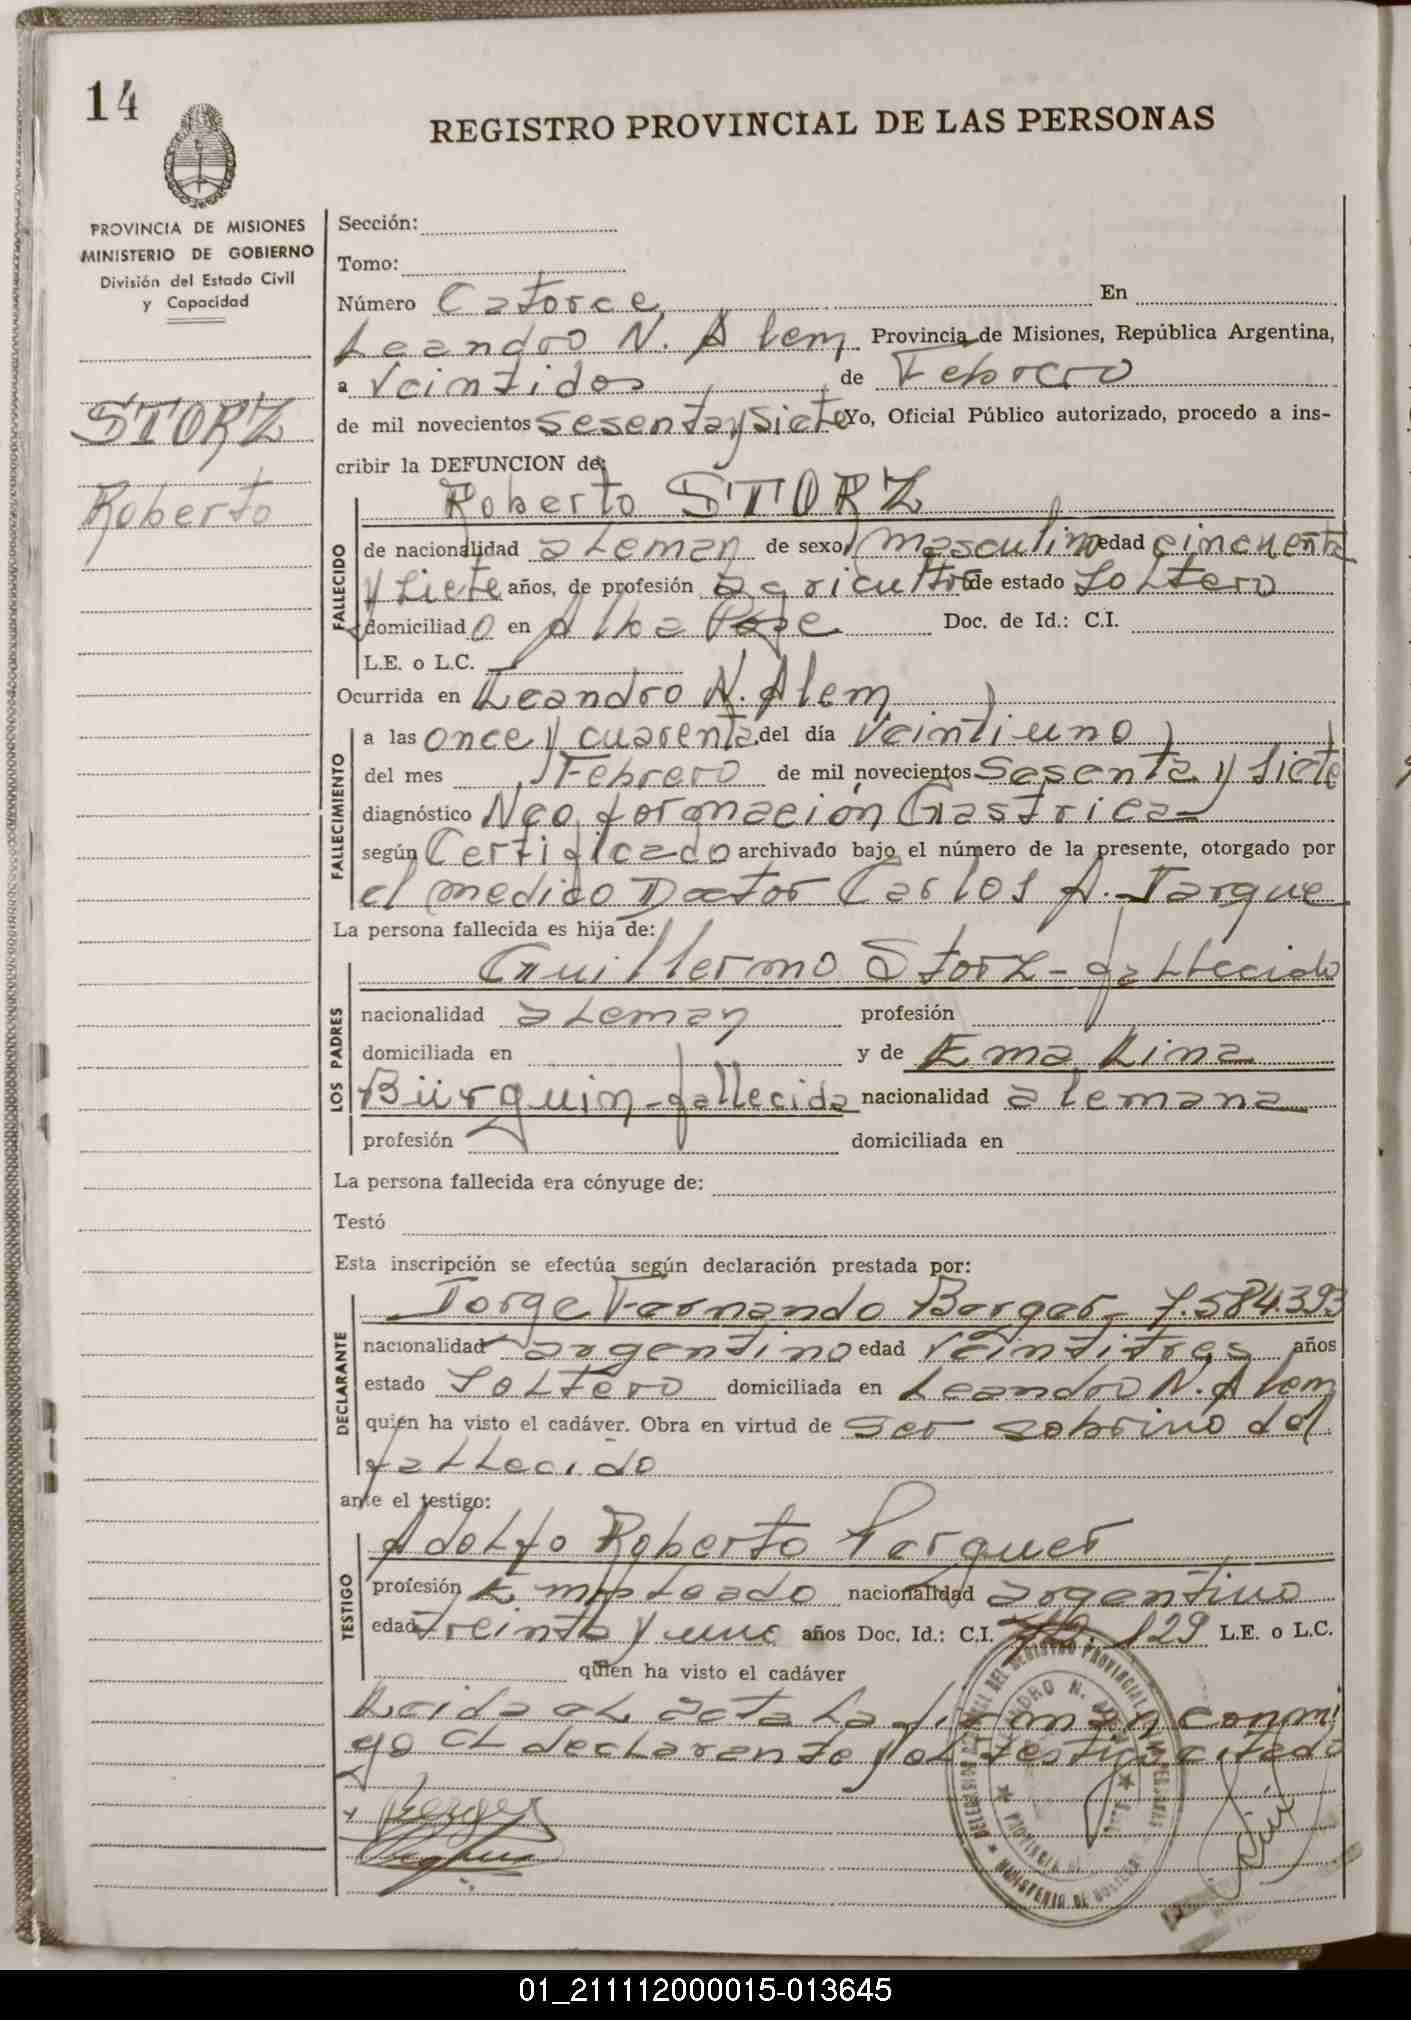 14
REGISTRO PROVINCIAL DE LAS PERSONAS
PROVINCIA DE MISIONES
MINISTERIO DE GOBIERNO
División del Estado Civil
y Capacidad
STORZ
Roberto
Sección:
Tomo:
Número Catorce En
Leandro N. Alem Provincia de Misiones, República Argentina,
a Veintidos de Febrero
de mil novecientos sesenta y Siete Yo, Oficial Público autorizado, procedo a ins-
cribir la DEFUNCION de:
Roberto STORZ
FALLECIDO
de nacionalidad aleman de sexo masculino edad cincuenta
y Siete años, de profesión agricultor de estado Soltero
domiciliado en Alba Pose Doc. de Id.: C.I.
L.E. o L.C.
Ocurrida en Leandro N. Alem
FALLECIMIENTO
a las once y cuarenta del día Veintiuno
del mes Febrero de mil novecientos Sesenta y Siete
diagnóstico Neo formación Gastrica
según Certificado archivado bajo el número de la presente, otorgado por
el medico Doctor Carlos A. Jarque
La persona fallecida es hija de:
LOS PADRES
Guillermo Storz - fallecido
nacionalidad aleman profesión
domiciliada en y de Ema Lina
Bürguin - fallecida nacionalidad alemana
profesión domiciliada en
La persona fallecida era cónyuge de:
Testó
Esta inscripción se efectúa según declaración prestada por:
DECLARANTE
Jorge Fernando Berger - 7.584.393
nacionalidad argentino edad Veintitres años
estado Soltero domiciliada en Leandro N. Alem
quién ha visto el cadáver. Obra en virtud de ser sobrino del
fallecido
ante el testigo:
TESTIGO
Adolfo Roberto
profesión Empleado nacionalidad argentino
edad treinta y uno años Doc. Id.: C.I. 129 L.E. o L.C.
quien ha visto el cadáver
Leida el acta la firman conmi
go el declarante y el testigo citado
Berger
DEL REGISTRO PROVINCIAL DE LAS PERSONAS
LEANDRO N. ALEM
MINISTERIO DE GOBIERNO
01_211112000015-013645